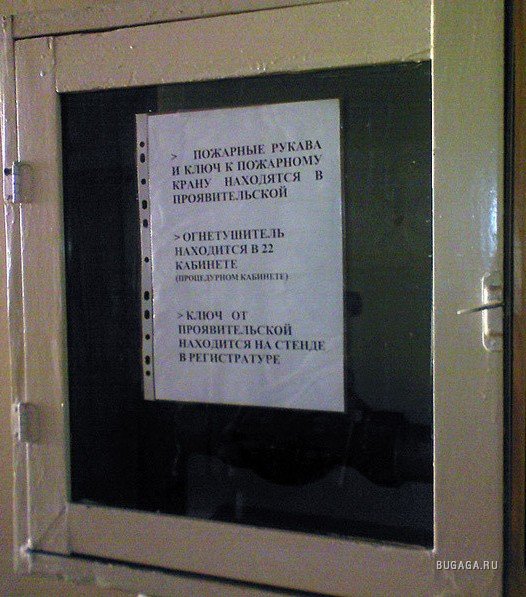 > ПОЖАРНЫЕ РУКАВА
И КЛЮЧ К ПОЖАРНОМУ
КРАНУ НАХОДЯТСЯ В
ПРОЯВИТЕЛЬСКОЙ
> ОГНЕТУШИТЕЛЬ
НАХОДИТСЯ В 22
КАБИНЕТЕ
(ПРОЦЕДУРНОМ КАБИНЕТЕ)
> КЛЮЧ ОТ
ПРОЯВИТЕЛЬСКОЙ
НАХОДИТСЯ НА СТЕНДЕ
В РЕГИСТРАТУРЕ
BUGAGA.RU